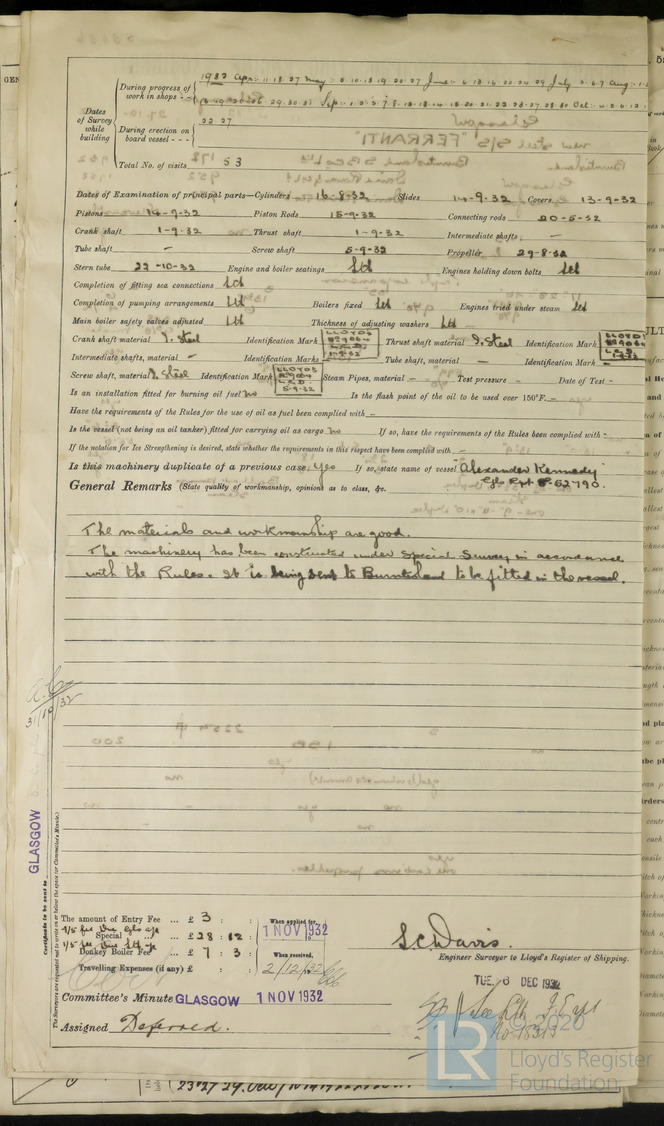 Dates of Survey while building
During progress of work in shops - -
1932 Apr: 11. 18. 27 May 5. 10. 18. 19. 20. 27 June 6. 13. 16. 22. 24. 29 July 5. 6. 7 Aug:
29. 30. 31 Sep: 1. 2. 5. 7. 8. 13. 14. 15. 20. 21. 22. 23. 27. 28. 30 Oct: 4. 5. 6. 12.
During erection on board vessel - - -
22 27
Total No. of visits 53
Dates of Examination of principal parts—Cylinders 16-8-32 Slides 14-9-32 Covers 13-9-32
Pistons 14-9-32 Piston Rods 15-9-32 Connecting rods 20-5-32
Crank shaft 1-9-32 Thrust shaft 1-9-32 Intermediate shafts -
Tube shaft - Screw shaft 5-9-32 Propeller 29-8-32
Stern tube 22-10-32 Engine and boiler seatings Lth Engines holding down bolts Lth
Completion of fitting sea connections Lth
Completion of pumping arrangements Lth Boilers fixed Lth Engines tried under steam Lth
Main boiler safety valves adjusted Lth Thickness of adjusting washers Lth
Crank shaft material I. Steel Identification Mark LLOYDS No 9064 1-9-32 Thrust shaft material I. Steel Identification Mark LLOYDS No 9064 1-9-32
Intermediate shafts, material - Identification Marks - Tube shaft, material - Identification Mark -
Screw shaft, material I. Steel Identification Mark LLOYDS No 9064 L.S.D. 5-9-32 Steam Pipes, material - Test pressure - Date of Test -
Is an installation fitted for burning oil fuel no Is the flash point of the oil to be used over 150°F. -
Have the requirements of the Rules for the use of oil as fuel been complied with -
Is the vessel (not being an oil tanker) fitted for carrying oil as cargo no If so, have the requirements of the Rules been complied with -
If the notation for Ice Strengthening is desired, state whether the requirements in this respect have been complied with -
Is this machinery duplicate of a previous case Yes If so, state name of vessel "Alexander Kennedy"
Gls Rpt No 52790.
General Remarks (State quality of workmanship, opinions as to class, &c.
The materials and workmanship are good.
The machinery has been constructed under Special Survey in accordance
with the Rules. It is being sent to Burntisland to be fitted in the vessel.
31/10/32
GLASGOW
Certificate to be sent to
The Surveyors are requested not to write on or below the space for Committee's Minute.
The amount of Entry Fee ... £ 3 : :
4/5 fee due Gls a/c
Special ... £ 28 : 12 :
1/5 fee due Lth a/c
Donkey Boiler Fee ... £ 7 : 3 :
Travelling Expenses (if any) £ : :
When applied for,
1 NOV 1932
When received,
2/12/32
S.C. Davis.
Engineer Surveyor to Lloyd's Register of Shipping.
Committee's Minute GLASGOW 1 NOV 1932
TUE. 6 DEC 1932
Assigned Deferred.
See Lth F.E. rpt
No 18313
© 2020
LR
Lloyd's Register
Foundation